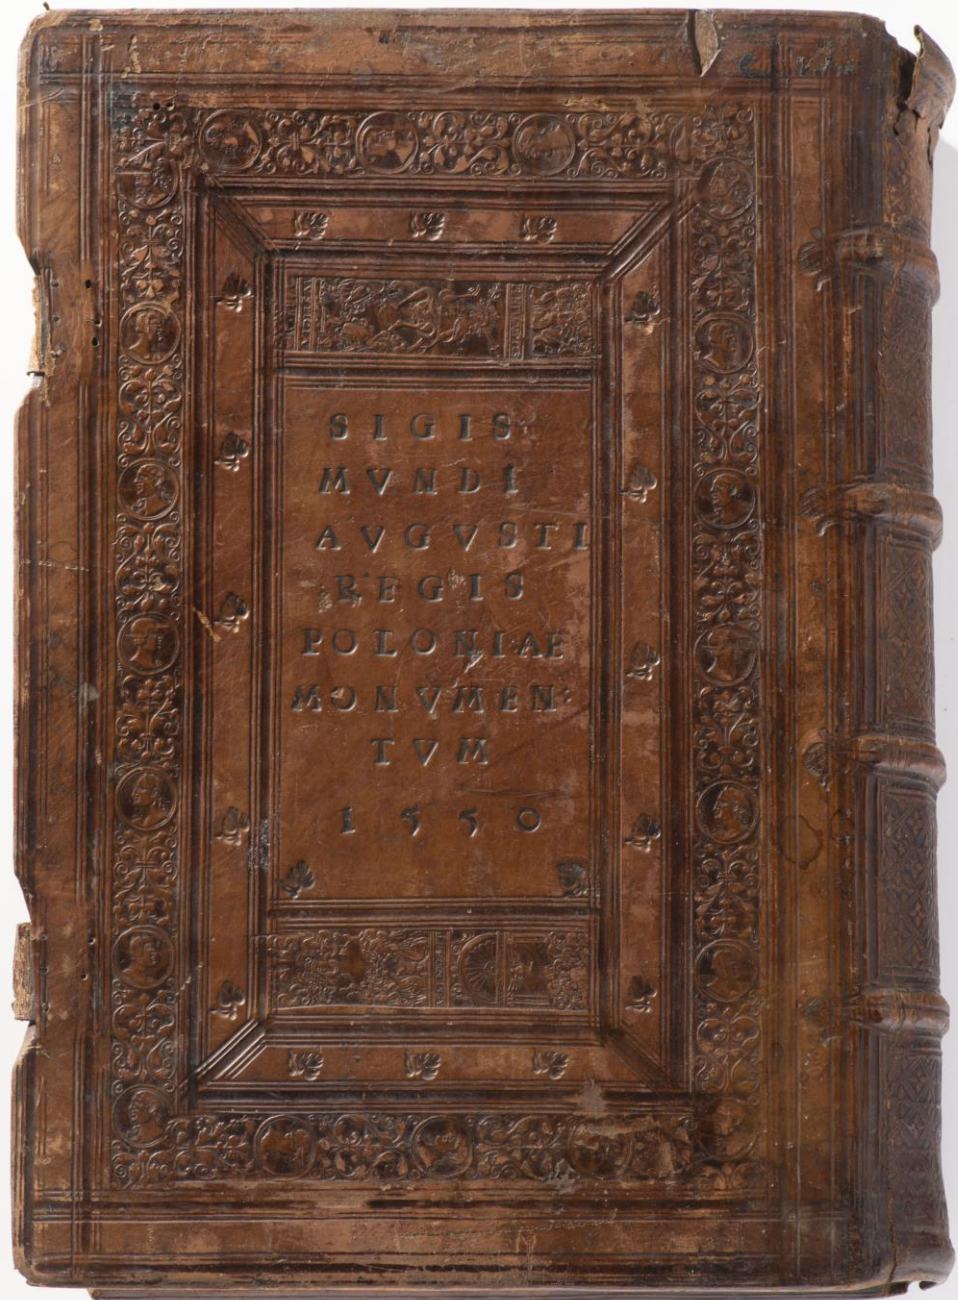 SIGIS
MVNDI
AVGVSTI
REGIS
POLONIAE
MONVMEN:
TVM
1550